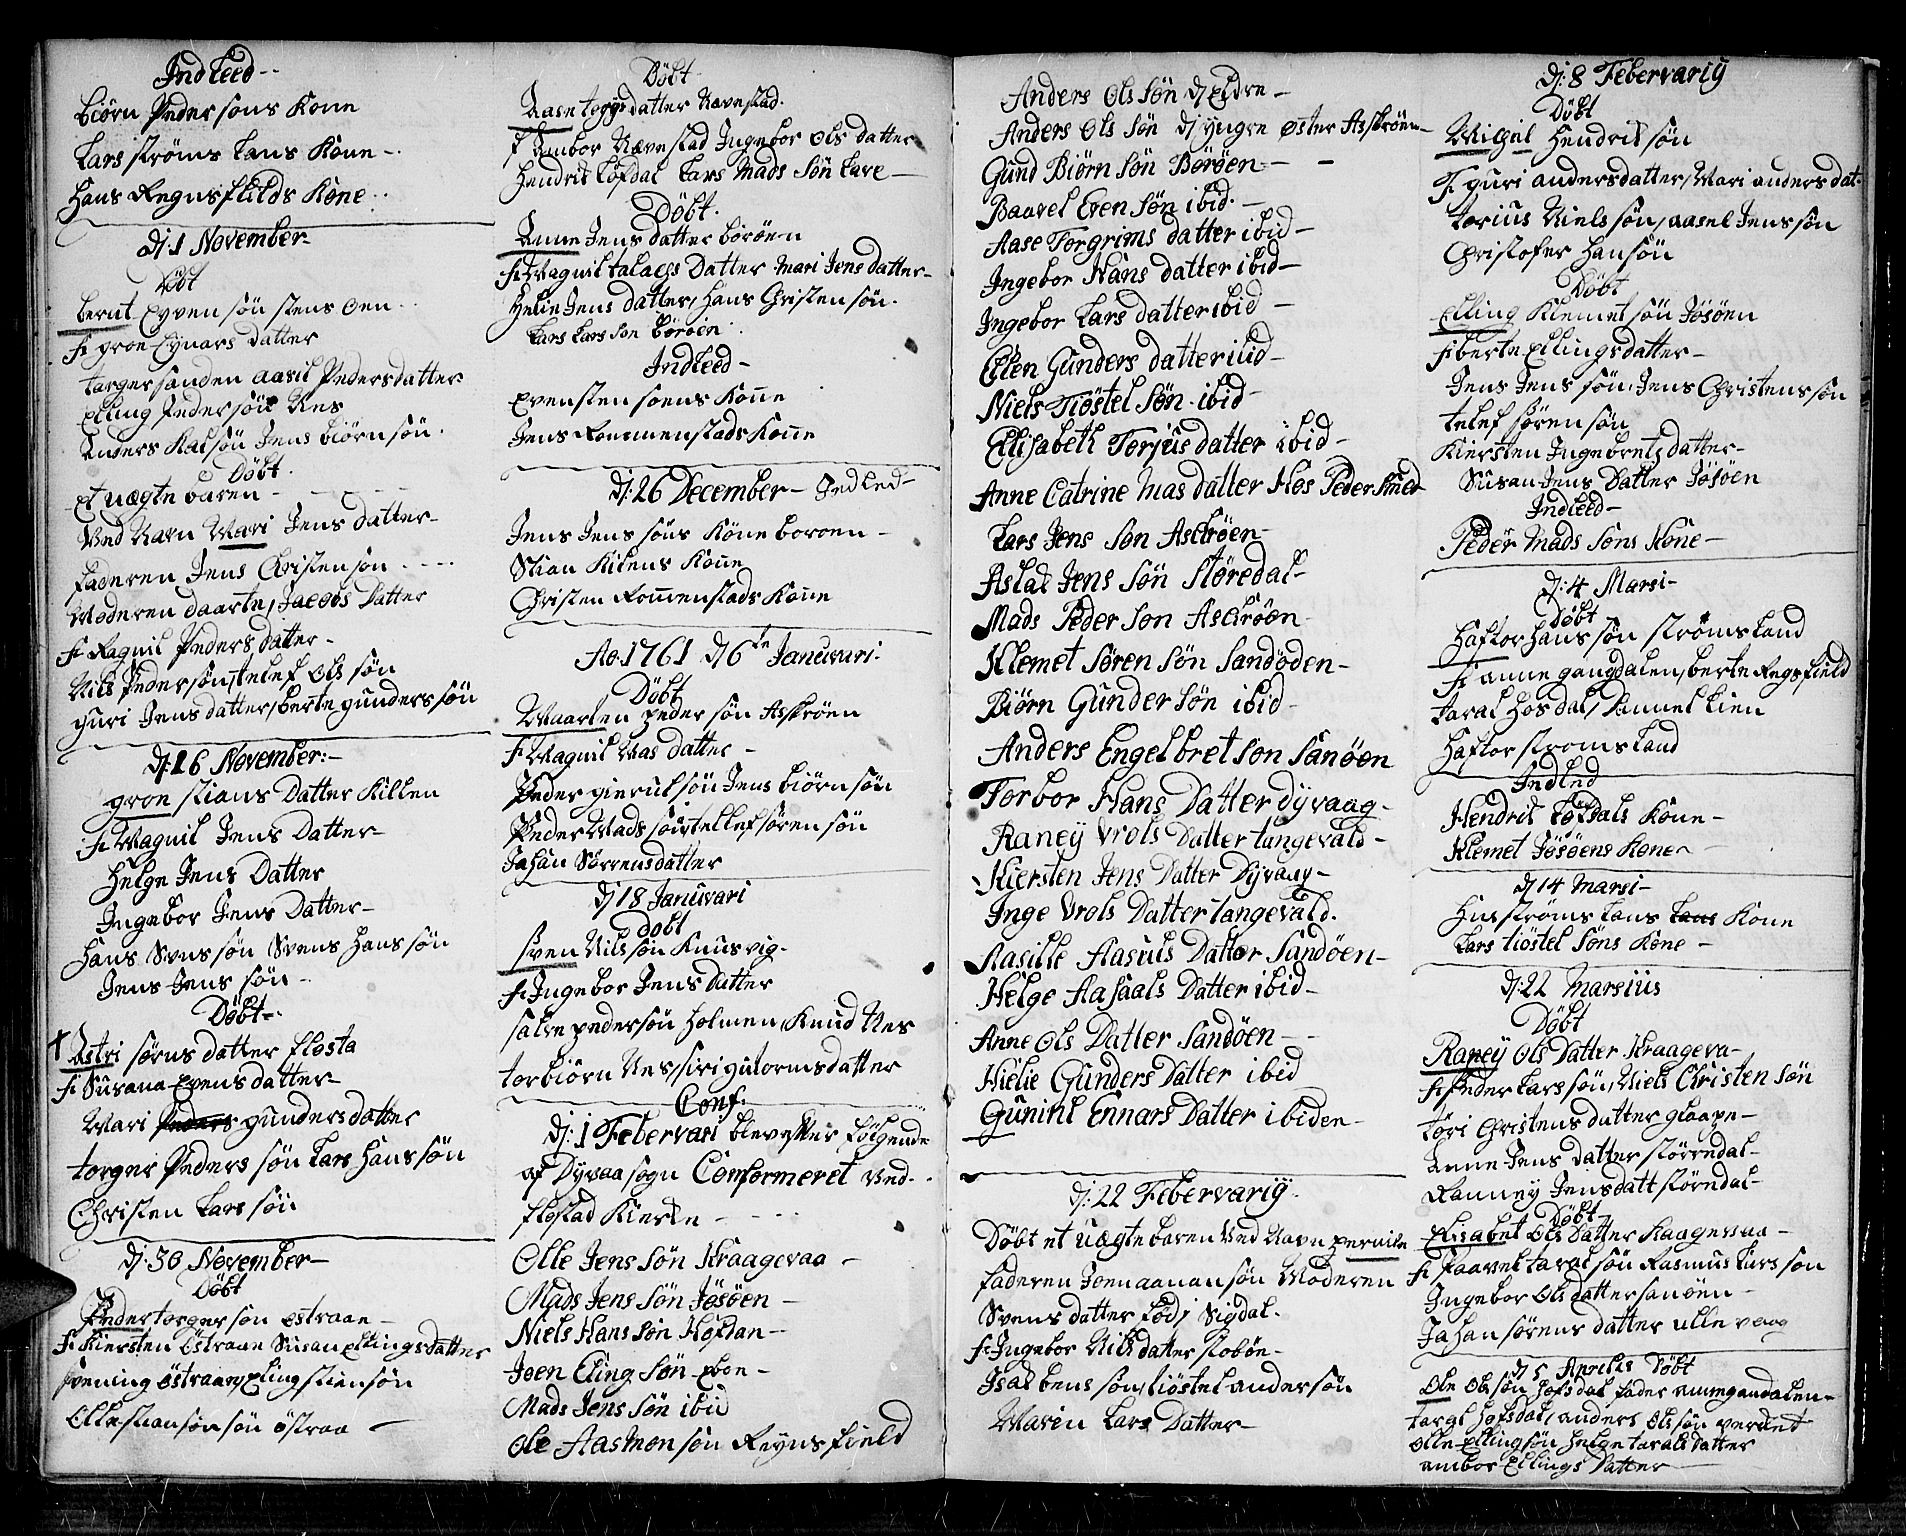 Indleed--
biörn Peder söns Kone
Lars strøms Lans Kone -
Hans Regnsfields Kone
dj 1 November
Döbt
bernt Eyven sön stens oen
F. groe Eynars datter
targer sanden aasil Pedersdatter
Elling Peder sön Nes
Anders Kalsön Jens biörn sön.
Döbt.
Et uægte baren -
Ved Navn Mari Jens datter-
faderen Jens Christen sön
Moderen daarte, Jacobs Datter
F Ragnil Peders datter-
Nils Peder sön, telef Ols sön
guri Jens datter, berte gunders sön
dj: 16 November:-
groe stians Datter Killen
F. Magnil Jens Datter-
Helge Jens Datter
Ingebor Jens Datter-
Hans Svens sön Svens Hans sön
Jens Jens sön -
Döbt-
† Astri sörns datter flosta
F. Susana Evens datter-
Mari Peders gunders datter
torger Peders sön Lars Hans sön
Christen Lars sön
dj: 30 November-
Döbt
Peder torger son ostraae-
F. Kiersten Östraae Susan Ellings datter
svening östraae, Eling stiensön
Olle stiansön sön östraa -
Döbt
Aase torgs datter Nævestad.
F Ambor Nævestad Ingebor Ols datter
Hendrik Lofdal Lars Mads sön Lare -
Döbt.
Anne Jens datter boröen
F. Magnil talaegs Datter Mari Jens datter-
Helie Jens datter, Hans Christen sön.
Lars Lars son boröen
Indleed-
Evensten soens Kone
Jens Rommenstads Kone
dj: 26 December- Indled-
Jens Jens söns Kone boroen -
Stian Kilens Kone
Christen Rommenstads Kone
Ao. 1761 dj 6te Januvari.
Döbt
Maarten Peder sön Askröen
F. Magnil Mas datter -
Peder gierulsön Jens biörn sön
Peder Mads sön tellef sören sön
Jahan Sörrens datter
dj 18 Januvari
döbt
Sven Nils sön Knusvig-
F. Ingebor Jens datter
salve peder sön Holmen, Knud Nes
torbiörn Nes, siri gutorms datter
Conf:
dj: 1 Febervari bleve efter følgende
af Dyvaa sogn Conformeret ved
flostad Kierke -
Olle Jens Sön Kraagevaa -
Mads Jens Sön Jösöen -
Niels Hans Sön Hofdan-
Joen Eling Sön Eboe -
Mads Jens Sön ibid
Ole Aasmon sön Reynsfield
Anders Ols Sön dj Eldre -
Anders Ols Sön dj yngre Øster Askröen-
Gund Biörn Sön Böröen- -
Baavel Even Sön ibid. -
Aase Torgrims datter ibid -
Ingebor Hans datter ibid-
Ingebor Lars datter ibid -
Ellen Gunders datter ibid-
Niels Tiöstel Sön ibid-
Ellisabeth Torjus datter ibid -
Anne Catrine Mas datter Hos Peder Smed
Lars Jens Sön Askröen-
Aslak Jens Sön Störedal-
Mads Peder Son Askröen
Klemet Sören Sön Sandöden-
Biörn Gunder Sön ibid-
Anders Engelbret son Sanöen
Torbor Hans Datter Dyvaag-
Raney Vrols Datter tangevald-
Kiersten Jens Datter Dyvaag-
Inge Vrols Datter Tangevald.
Aasille Aasuls Datter Sandöen-
Helge Aasaals Datter ibid-
Anne Ols Datter Sandöen- -
Hielie Gunders Datter ibid
Gunihl Ennars Datter ibiden-
dj: 22 Febervarij.
Döbt et uægte baren Ved Navn pernile
faderen Joenaanan sön Moderen
Svens datter föd j Sigdal.
F. Ingebor Nils datter stoböe-
Isak bens sön, tiöstel anders sön
Maren Lars Datter-
dj: 8 Febervarij
Döbt
Migil Hendrik sön
F. guri anders datter, Mari anders dat
torius Niels sön, aasel Jens sön
Christofer Hansön
Döbt
Elling Klemet sön Jösöen
F. berte Ellings datter-
Jens Jens sön, Jens Christens sön
telef sören sön
Kiersten Ingebrets datter-
Susan Jens Datter Jösöen
Indleed-
Peder Mads Söns Kone-
dj: 4 Marsi-
Döbt
Haftor Hans sön strömsland
F. anne gangdalen, berte Regsfield
taral Hosdal, Samuel Lien
Haftor stromsland
Indled
Hendrik Löfdals Kone-
Klemet Jösöens Kone-
dj 14 Marsi-
Hns ströms Lans Lans Kone
Lars tiöstel Söns Kone -
dj: 22 Marsius
Döbt
Raney Ols Datter Kraageva-
F. Peder Lars sön, Niels Christen sön
tori Christens datter glaape-
Anne Jens Datter störrdal-
Ranney Jens datt störedal-
Döbt
Elisabet Ols Datter Kaagevaa-
F. Paavel taral sön Rasmus Lars son
Ingebor Ols datter sanöen-
Jahan sörens datter ulle vaag
dj 5 Aprilis Döbt
Ole Olssön Hofsdal fader anne gandalen-
targl Hofsdal, anders Ols sön verket
Olle Elling sön Helge taralsdatter
ambor Ellings datter